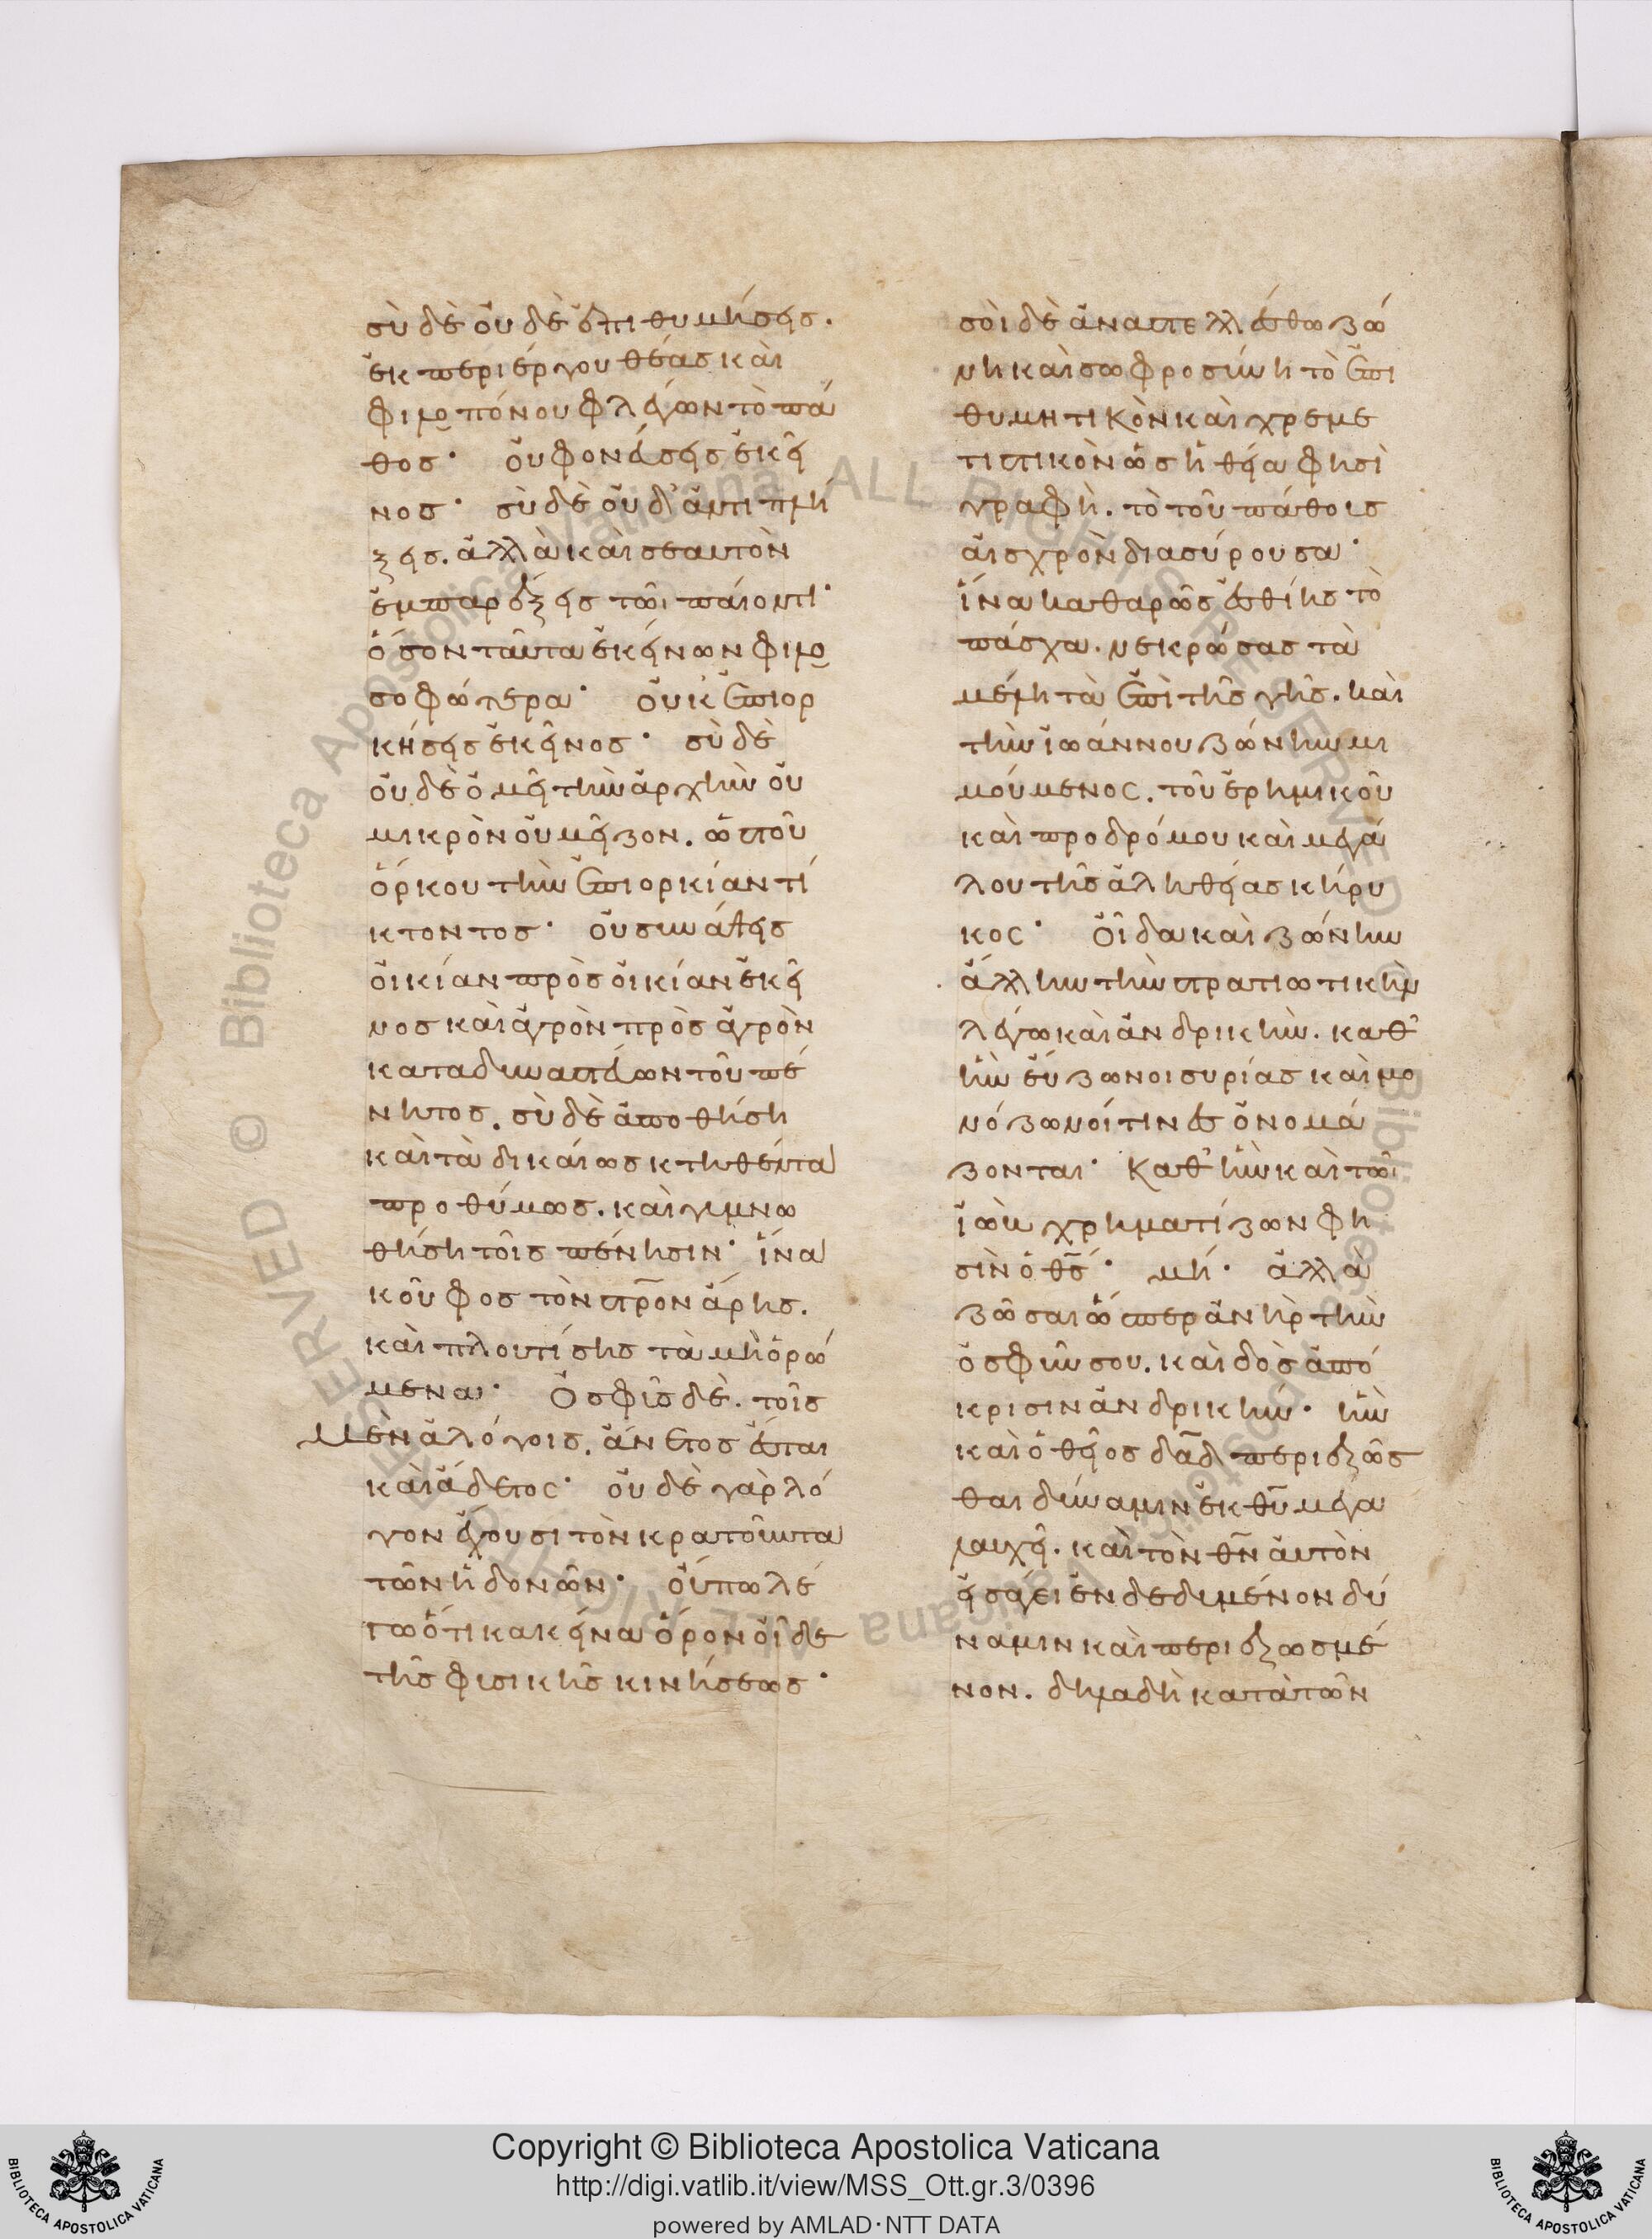 σὺ δὲ οὐδὲ ἐπιθυμήσεις.
ἐκ περιέργου θέας καὶ
φιλοπόνου φλέγων τὸ πά
θος· οὐ φονεύσεις ἐκεῖ
νος· σὺ δὲ οὐδ' ἀντιπλή
ξεις. ἀλλὰ καὶ σεαυτὸν
ἐμπαρέξεις τῶι παίοντι·
ὅσον ταῦτα ἐκείνων φιλο
σοφώτερα· οὐκ ἐπιορ
κήσεις ἐκεῖνος· σὺ δὲ
οὐδὲ ὀμεῖ τὴν ἀρχὴν οὐ
μικρὸν οὐ μεῖζον. ὡς τοῦ
ὅρκου τὴν ἐπιορκίαν τί
κτοντος· οὐ συνάψεις
οἰκίαν πρὸς οἰκίαν ἐκεῖ
νος καὶ ἀγρὸν πρὸς ἀγρὸν
καταδυναστεύων τοῦ πέ
νητος. σὺ δὲ ἀποθήση
καὶ τὰ δικαίως κτηθέντα
προθύμως. καὶ γυμνω
θήση τοῖς πένησιν· ἵνα
κοῦφος τὸν στρον ἄρης.
καὶ πλουτίσης τὰ μὴ ὁρώ
μενα· Ὀσφῦς δὲ. τοῖς
Μὲν ἀλόγοις. ἄνετος ἔσται
καὶ ἄδετος· οὐδὲ γὰρ λό
γον ἔχουσι τὸν κρατοῦντα
τῶν ἡδονῶν· οὔπω λέ
γω ὅτι κἀκεῖνα ὅρον οἶδε
τῆς φυσικῆς κινήσεως·
σοὶ δὲ ἀναστελλέσθω ζώ
νη καὶ σωφροσύνη τὸ ἐπι
θυμητικὸν καὶ χρεμε
τιστικὸν ὥς ἡ θεία φησὶ
γραφὴ. τὸ τοῦ πάθους
αἰσχρὸν διασύρουσα·
ἵνα καθαρῶς ἐσθίης τὸ
πάσχα. νεκρώσας τὰ
μέλη τὰ ἐπὶ τῆς γῆς. καὶ
τὴν ἰωάννου ζώνην μι
μούμενος. τοῦ ἐρημικοῦ
καὶ προδρόμου καὶ μεγά
λου τῆς ἀληθείας κήρυ
κος· Οἶδα καὶ ζώνην
ἄλλην τὴν στρατιωτικὴν
λέγω καὶ ἀνδρικὴν. καθ'
ἣν εὔζωνοι συρίας καὶ μο
νόζωνοί τινες ὀνομά
ζονται· Καθ' ἣν καὶ τῶι
ἰὼβ χρηματίζων φη
σὶν ὁ θς· μή· ἀλλὰ
ζῶσαι ὥσπερ ἀνὴρ τὴν
ὀσφῦν σου. καὶ δὸς ἀπό
κρισιν ἀνδρικήν· ἣν
καὶ ὁ θεῖος δαδ περιεζῶσ
θαι δύναμιν ἐκ θυ μεγα
λαυχεῖ. καὶ τὸν θν αὐτὸν
εἰσάγει ἐνδεδυμένον δύ
ναμιν καὶ περιεζωσμέ
νον. δηλαδὴ κατὰ τῶν
Copyright © Biblioteca Apostolica Vaticana
http://digi.vatlib.it/view/MSS_Ott.gr.3/0396
powered by AMLAD·NTT DATA